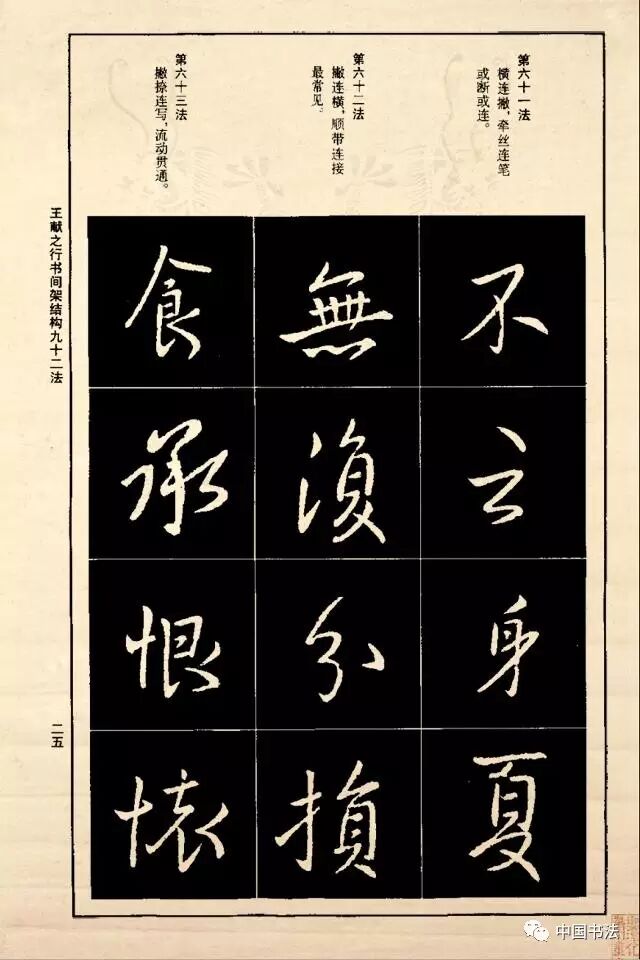 第六十一法
横连撇，牵丝连笔
或断或连。
第六十二法
撇连横，顺带连接
最常见。
第六十三法
撇捺连写，流动贯通。
不
云
身
夏
無
復
分
損
食
承
恨
懷
王献之行书间架结构九十二法
二五
中国书法